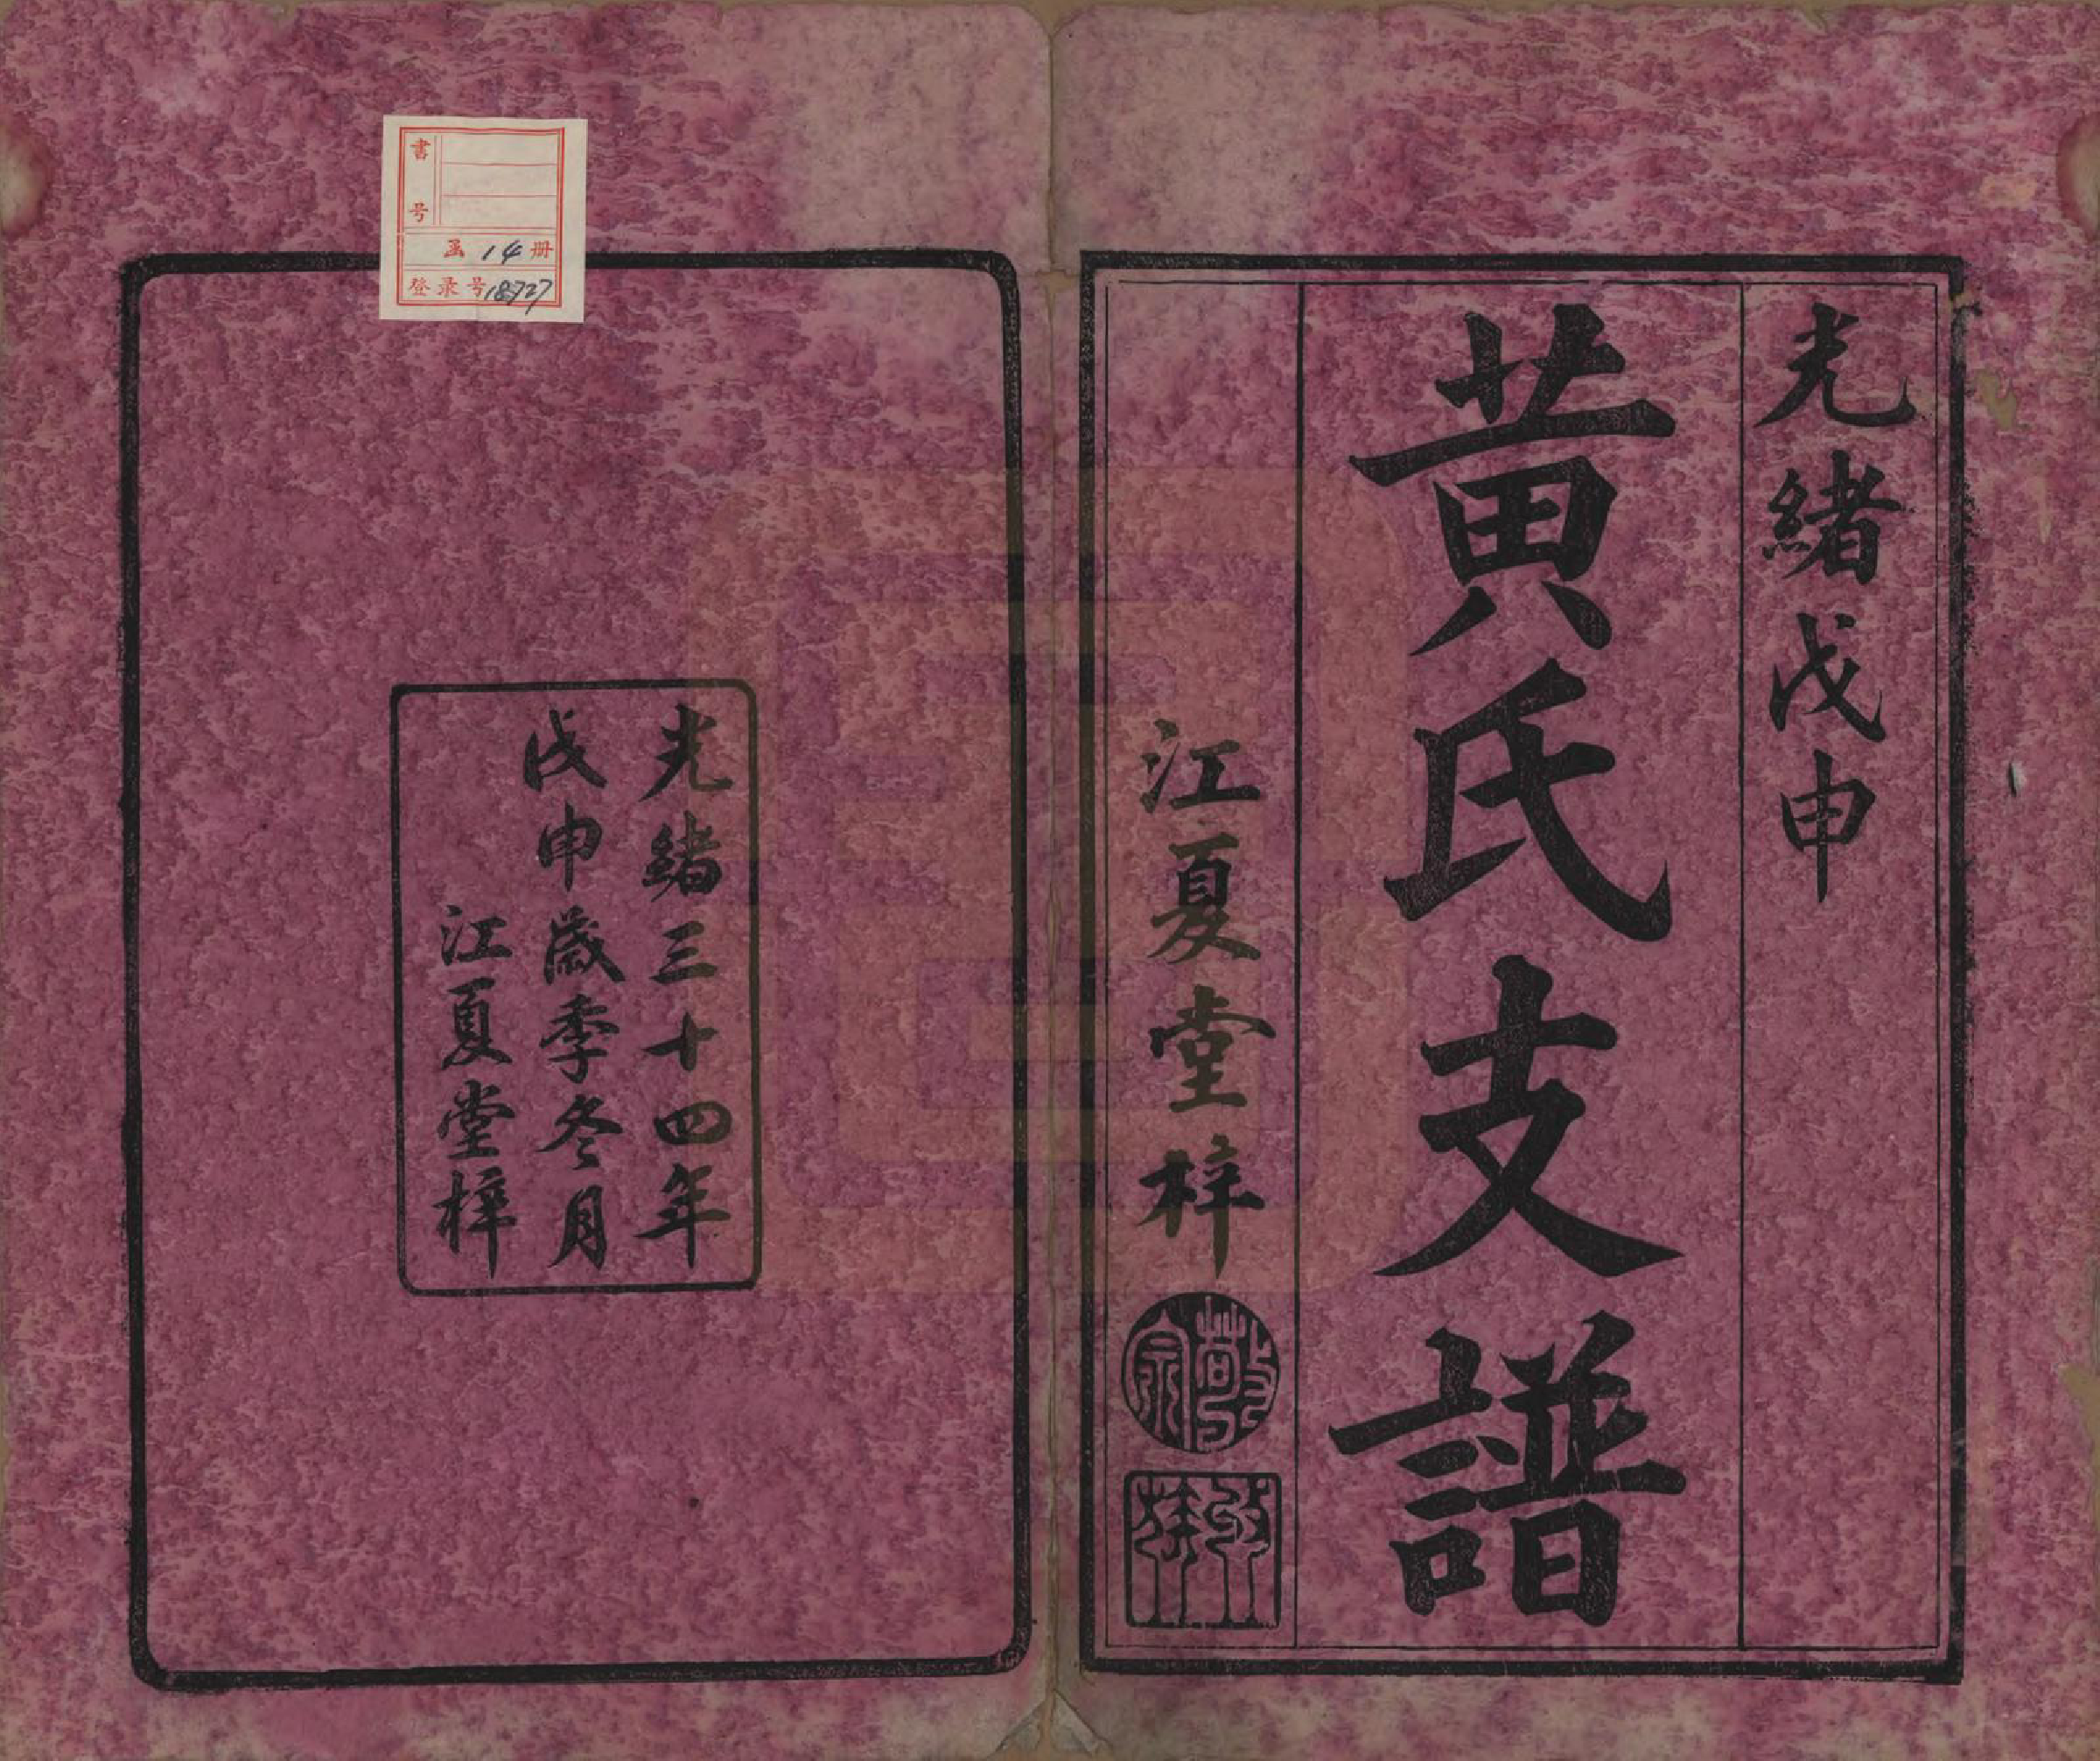 光緒戊申
黃氏支譜
江夏堂梓
敬宗
收族
光緒三十四年
戊申歲季冬月
江夏堂梓
書号
函 14 册
登录号 18727